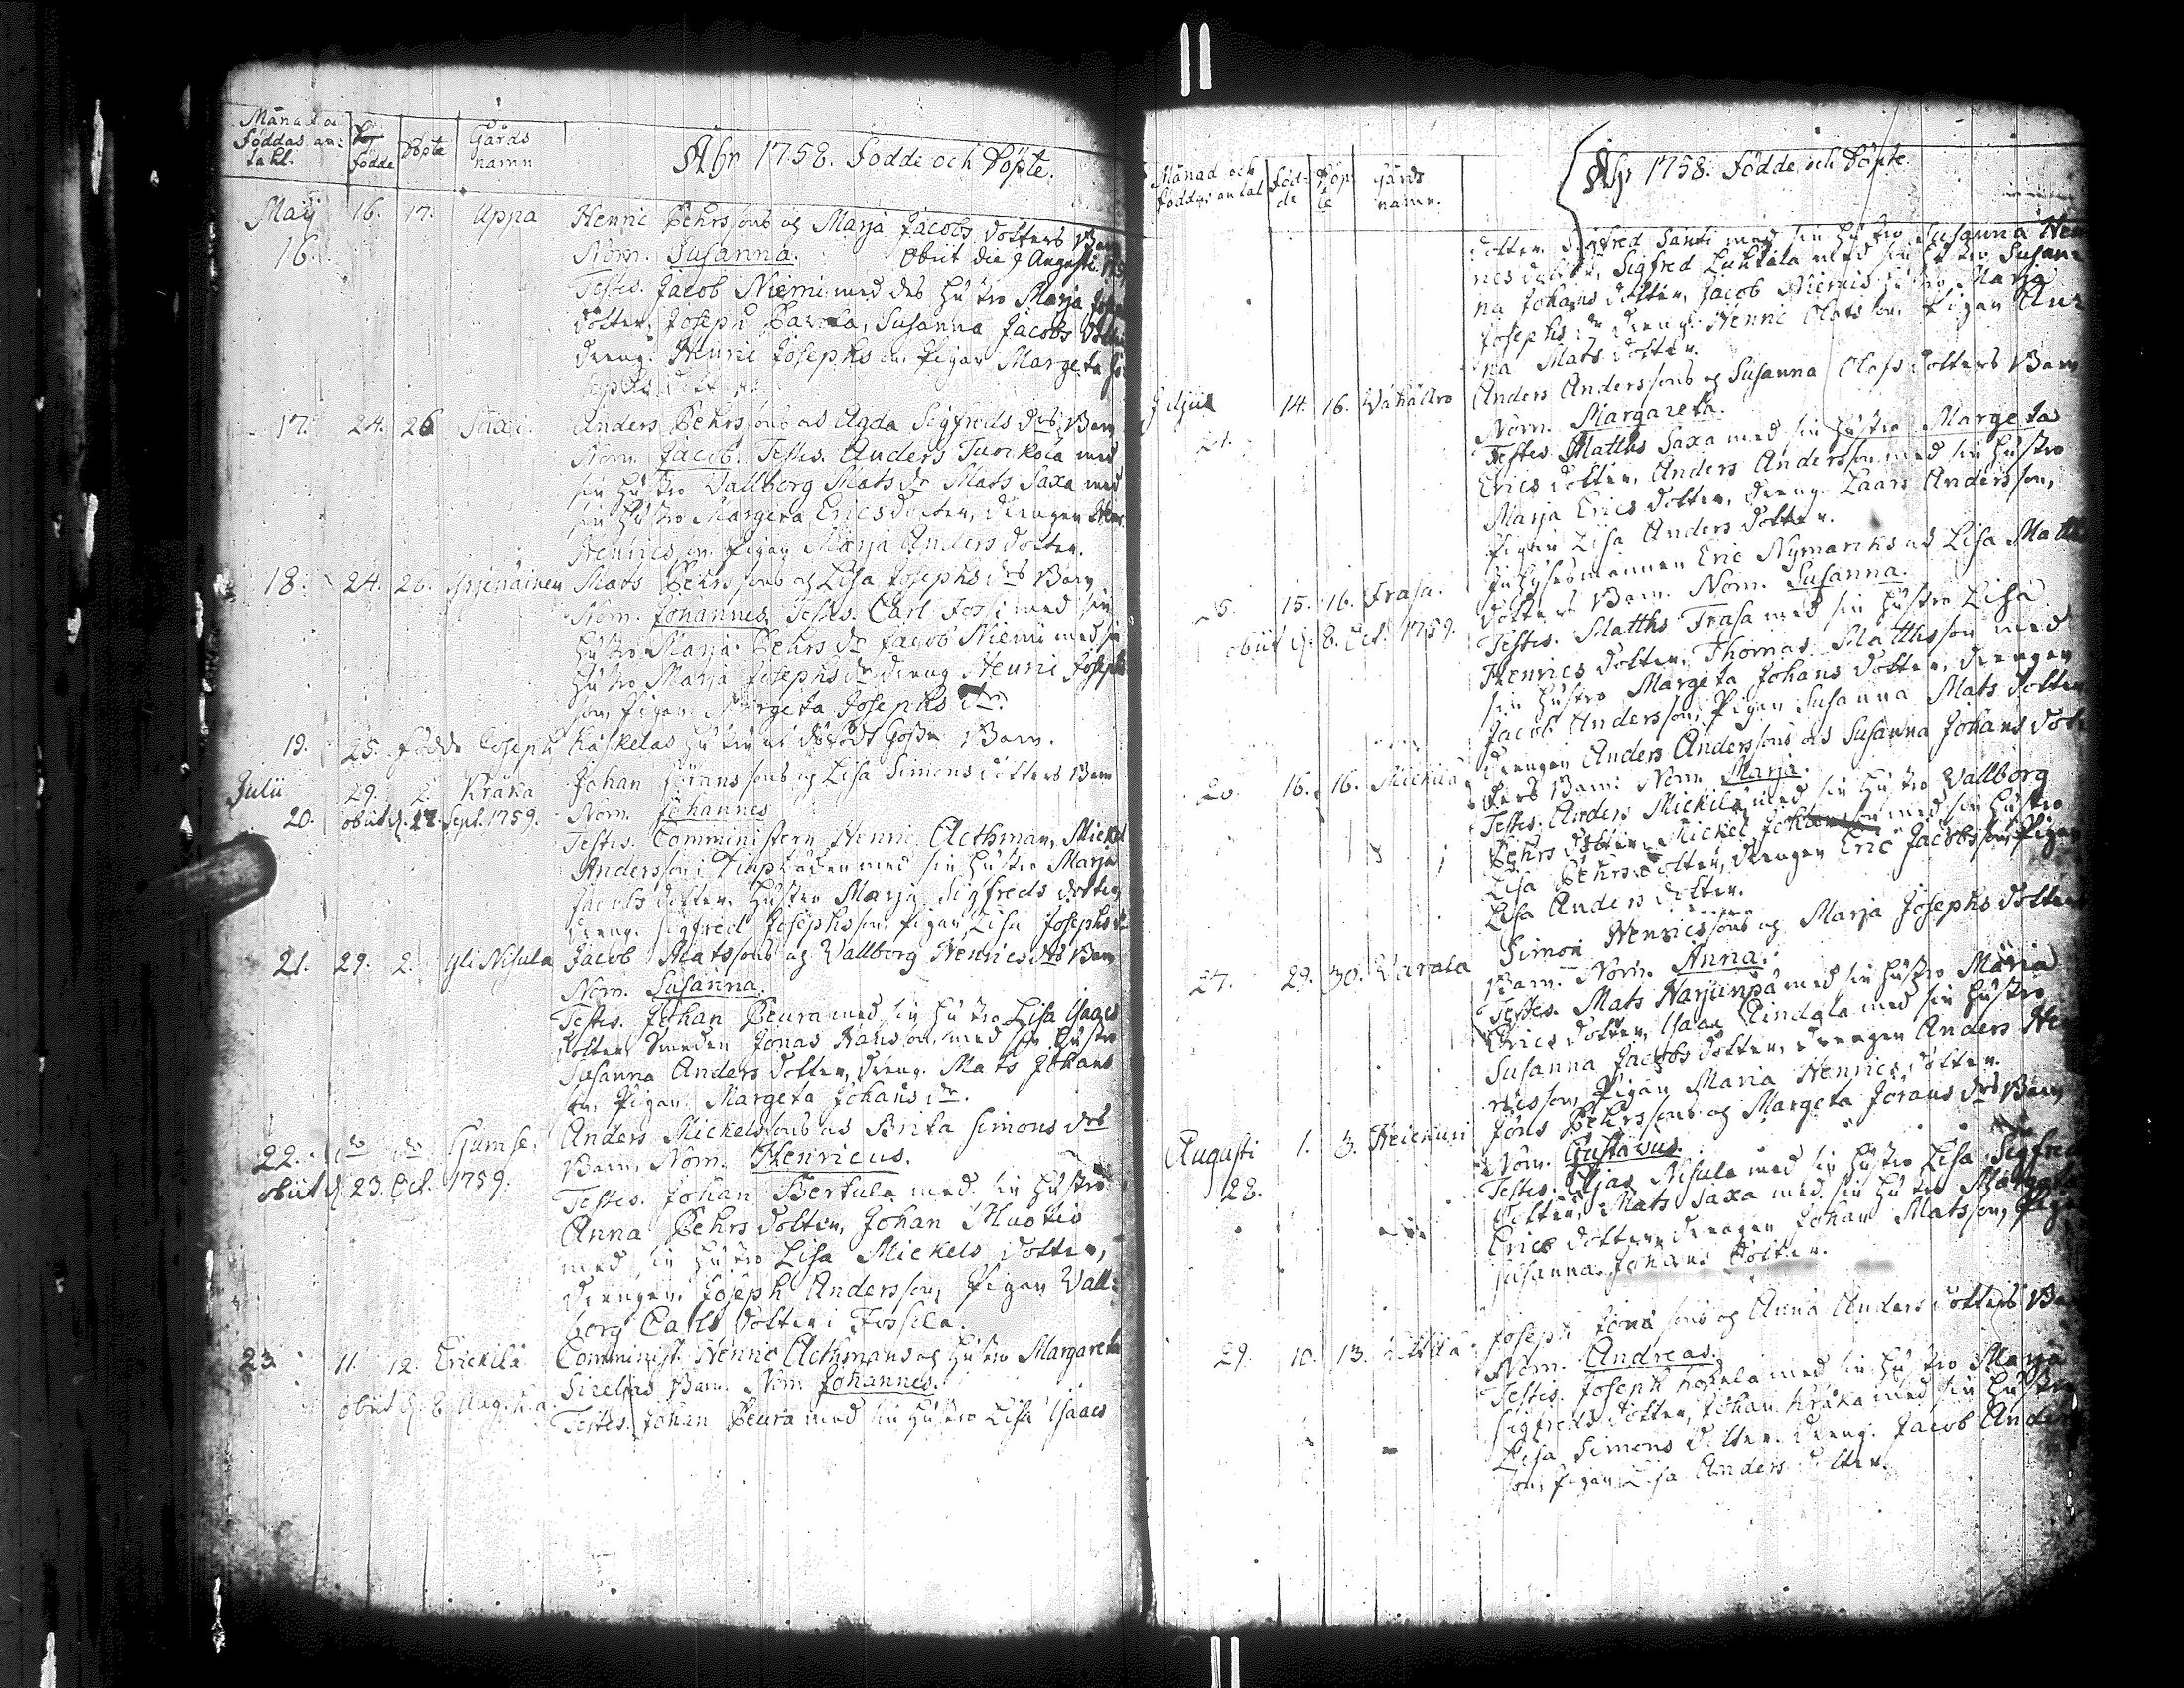 Månad o. Föddas an= tahl. | födde | döpte | Gårds namn | Åhr 1758. Födde och Döpte.
Maij 16. 17. Uppa Henric Pehrssons og Marja Jacobs dotters Barn
16. Nom. Susanna. Obiit die 9 Augusti
Testes. Jacob Niemi med des hustro Marja
dotter, Joseph Pavola, Susanna Jacobs
dreng. Henric Josephsson. Pigan Margeta Jo
sephs dotter.
17. 24. 26 Saxi. Anders Pehrssons och Agda Sigfreds drs Barn
Nom. Jacob. Testes. Anders med
sin hustro Vallborg Mats dr Mats Saxa med
sin hustro Margeta Erics dotter, drengen
Henricsson. Pigan Marja Anders dotter.
18. 24. 26. Mats Pehrssons og Lisa Josephs drs Barn
Nom. Johannes. Testes. Carl Jossi med sin
hustro Marja Pehrs dr Jacob Niemi med sin
hustro Marja Josephs dr dreng Henric Josephs
son, Pigan Margeta Josephs dr.
19. 25. födde Joseph Kaskelas hustro et dödfödt Gosse Barn.
Julii 29. 2. Kråka Johan Göranssons og Lisa Simons dotters Barn
20. obiit d. 22. Sept. 1759. Nom. Johannes
Testes. Comministern Henric Aethman, Mickel
Andersson i med sin hustro Marja
Jacobs dotter. hustro Marja Sigfreds dotter,
dreng. Sigfred Josephsson. Pigan Lisa Josephs dr
21. 29. 2. Yli Nisula Jacob Matssons og Vallborg Henrics drs Barn
Nom. Susanna.
Testes. Johan Peura med sin hustro Lisa Isaacs
dotter, Smeden Jonas Hansson, med sin hustro
Susanna Anders dotter, dreng. Mats Johans
son, Pigan. Margeta Johans dr.
22. do do Gumse. Anders Mickelssons och Brita Simons drs
obiit d. 23. Oct. 1759. Barn, Nom. Henricus.
Testes. Johan Bertula med sin hustro
Anna Pehrs dotter, Johan Muotio
med sin hustro Lisa Mickels dotter,
drengen. Joseph Andersson, Pigan Vall=
borg Carls dotter i Jossila.
23. 11. 12. Erickilä Comminist. Henric Aethmans og hustro Margareta
obiit d. 8. Aug. h. a. Sirelias Barn. Nom Johannes.
Testes. Johan Peura med sin hustro Lisa Isaacs
Månad och föddas antal | föd= de | Döp te | Gårds namn. | Åhr 1758. Födde och Döpte.
dotter. Sigfred Santi med sin hustro Susanna Hen
rics dotter, Sigfred Luhtala med sin hustro Susan=
na Johans dotter, Jacob Niemis hustro Marja
Josephs dr dreng. Henric Olofsson. Pigan An=
na Mats dotter.
14. 16. Anders Anderssons og Susanna Olofs dotters Barn
Nom. Margareta.
Testes. Matths Saxa med sin hustro Margeta
Erics dotter, Anders Andersson med sin hustro
Marja Erics dotter, dreng. Laars Andersson,
Pigan Lisa Anders dotter.
15. 16. Frasa. Inhysesmannen Eric Nymarks och Lisa Matths
obiit d. 8. Oct. 1759. dotters Barn. Nom. Susanna.
Testes. Matths Frasa med sin hustro Lisa
Henrics dotter, Thomas Matthsson med
sin hustro Margeta Johans dotter, drengen
Jacob Andersson, Pigan Susanna Mats dotter
26. 16. 16. Mickilä Drengen Anders Anderssons och Susanna Johans dot
ters Barn. Nom. Marja.
Testes. Anders Mickilä med sin hustro Vallborg
Pehrs dotter, Mickel Johansson med sin hustro
Lisa Pehrs dotter, drengen Eric Jacobsson, Pigan
Lisa Anders dotter.
27. 29. 30. Varala Simon Henricssons og Marja Josephs dotters
Barn. Nom. Anna.
Testes. Mats Harjunpä med sin hustro Maria
Erics dotter, Isaac Eindola med sin hustro
Susanna Jacobs dotter, drengen Anders Hen
ricsson, Pigan Maria Henrics dotter.
Augusti 1. 3. Heickuri Jöns Pehrssons og Margeta Jörans drs Barn
28. Nom. Gustavus.
Testes. Elias Nisula med sin hustro Lisa Sigfreds
dotter, Mats Saxa med sin hustro Margeta
Erics dotter, drengen Johan Matsson, Pigan
Susanna Johans dotter.
29. 10. 13. Joseph Jönssons og Anna Anders dotters Barn
Nom. Andreas.
Testes. Joseph med sin hustro Marja
Sigfreds dotter, Johan Kråka med sin hustro
Lisa Simons dotter. dreng. Jacob Anders
son, Pigan Lisa Anders dotter.